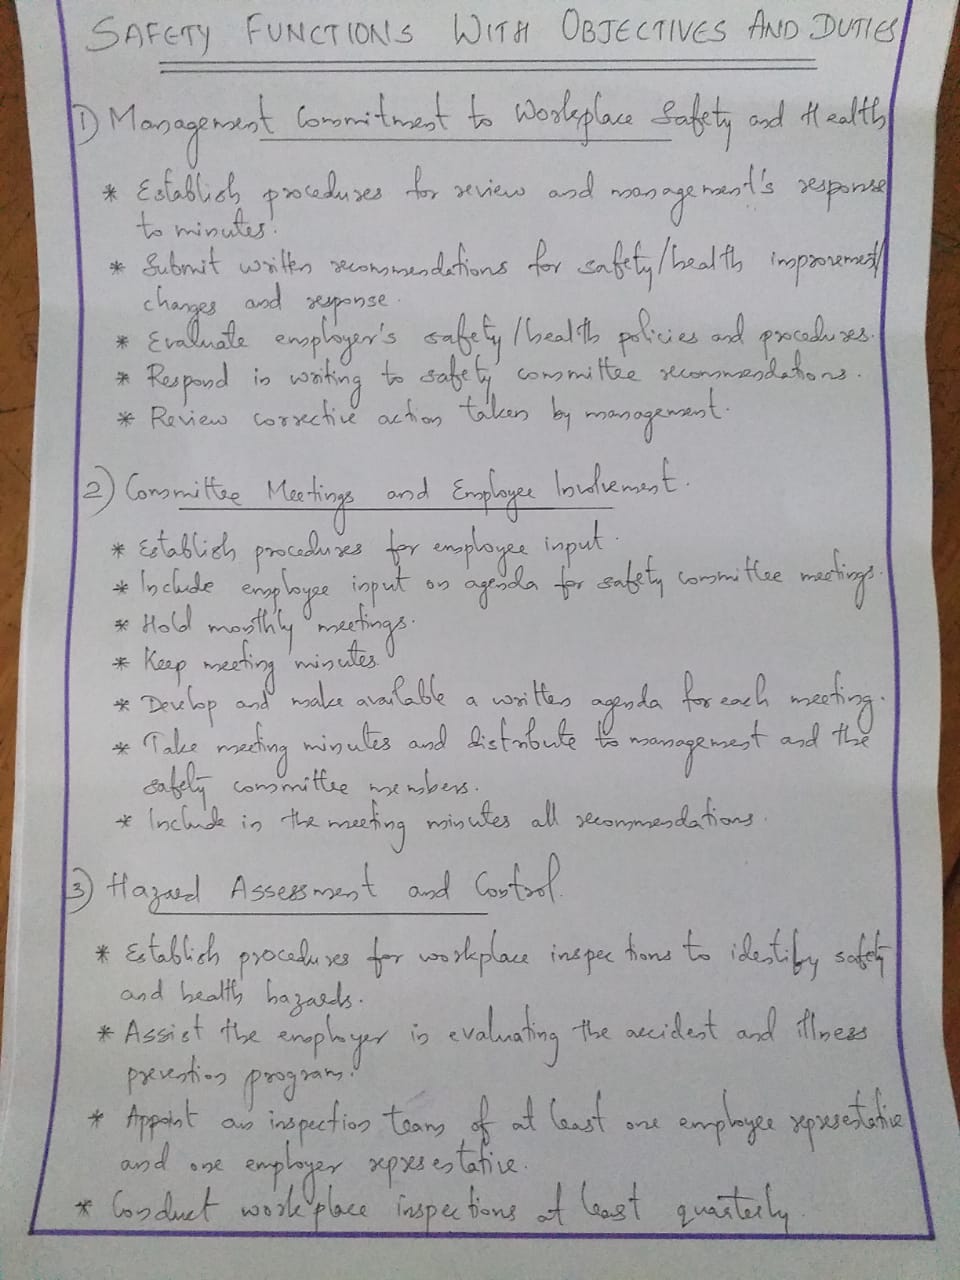 SAFETY FUNCTIONS WITH OBJECTIVES AND DUTIES
1) Management Commitment to Workplace Safety and Health
* Establish procedures for review and management's response
to minutes.
* Submit written recommendations for safety/health improvement/
changes and response.
* Evaluate employer's safety/health policies and procedures.
* Respond in writing to safety committee recommendations.
* Review corrective action taken by management.
2) Committee Meetings and Employee Involvement.
* Establish procedures for employee input.
* Include employee input on agenda for safety committee meetings.
* Hold monthly meetings.
* Keep meeting minutes.
* Develop and make available a written agenda for each meeting.
* Take meeting minutes and distribute to management and the
safety committee members.
* Include in the meeting minutes all recommendations.
3) Hazard Assessment and Control.
* Establish procedures for workplace inspections to identify safety
and health hazards.
* Assist the employer in evaluating the accident and illness
prevention program.
* Appoint an inspection team of at least one employee representative
and one employer representative.
* Conduct workplace inspections at least quarterly.